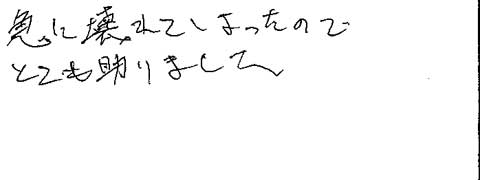 急に壊れてしまったので
とても助りました